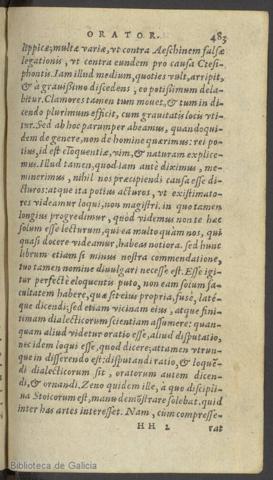 ORATOR. 483
lippicæ; multæ variæ, vt contra Aeschinem falsæ
legationis, vt contra eundem pro causa Ctesi-
phontis. Iam illud medium, quoties vult, arripit,
& à grauißimo discedens, eo potißimum dela-
bitur. Clamores tamen tum mouet, & tum in di-
cendo plurimum efficit, cum grauitatis locis vti-
tur. Sed ab hoc parumper abeamus, quandoqui-
dem de genere, non de homine quærimus: rei po-
tius, id est eloquentiæ, vim, & naturam explice-
mus. Illud tamen, quod iam antè diximus, me-
minerimus, nihil nos præcipiendi causa esse di-
cturos: atque ita potiùs acturos, vt existimato-
res videamur loqui, non magistri. in quo tamen
longiùs progredimur, quòd videmus non te hæc
solum esse lecturum, qui ea multo quàm nos, qui
quasi docere videamur, habeas notiora. sed hunc
librum etiam si minus nostra commendatione,
tuo tamen nomine diuulgari necesse est. Esse igi-
tur perfectè eloquentis puto, non eam solùm fa-
cultatem habere, quæ sit eius propria, fusè, latè-
que dicendi; sed etiam vicinam eius, atque fini-
timam dialecticorum scientiam assumere: quan-
quam aliud videtur oratio esse, aliud disputatio,
nec idem loqui esse, quod dicere; attamen vtrun-
que in disserendo est: disputandi ratio, & loquē-
di dialecticorum sit, oratorum autem dicen-
di, & ornandi. Zeno quidem ille, à quo discipli-
na Stoicorum est, manu demōstrare solebat. quid
inter has artes interesset. Nam, cum compresse-
HH 2 rat
Biblioteca de Galicia